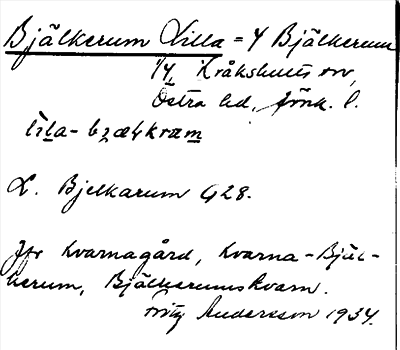 Bjälkerum Lilla = Y Bjälkerum
1/4, Kråkshults sn,
Östra hd, Jönk. l.
L. Bjelkarum G28.
Jfr Kvarnagård, Kvarna-Bjäl-
kerum, Bjälkerumskvarn.
Fritz Andersson 1934.